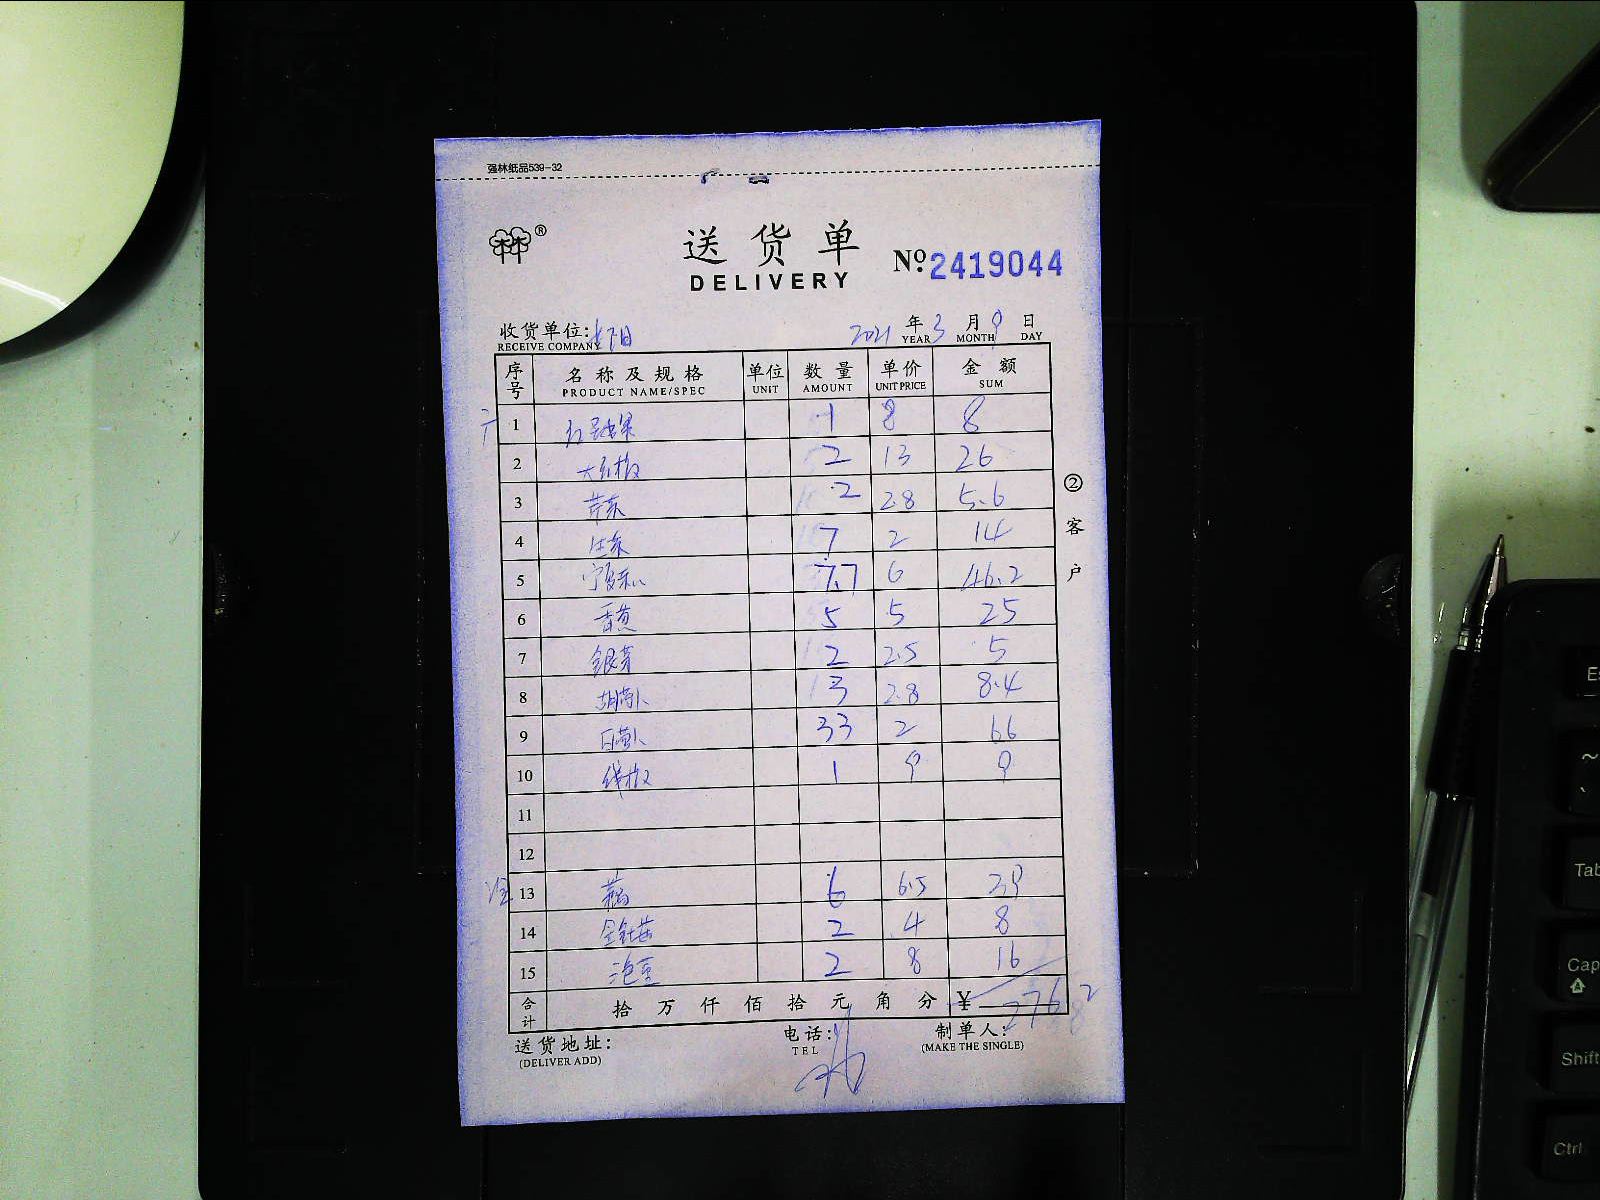 强林纸品539-32
林®
送货单
DELIVERY
№ 2419044
收货单位:
RECEIVE COMPANY
2021 年 3 月 9 日
YEAR MONTH DAY
序号 名称及规格 单位 数量 单价 金额
PRODUCT NAME/SPEC UNIT AMOUNT UNIT PRICE SUM
1 1 8 8
2 大红椒 2 13 26
3 芹菜 2 2.8 5.6
4 7 2 14
5 7.7 6 46.2
6 香煎 5 5 25
7 银芽 2 2.5 5
8 胡萝卜 3 2.8 8.4
9 白萝卜 33 2 66
10 线椒 1 9 9
11
12
13 藕 6 6.5 39
14 金针菇 2 4 8
15 泡豆 2 8 16
合计 拾万仟佰拾元角分 ¥ 276.2
②客户
送货地址:
(DELIVER ADD)
电话:
TEL
制单人:
(MAKE THE SINGLE)
Tab
Shift
Ctrl